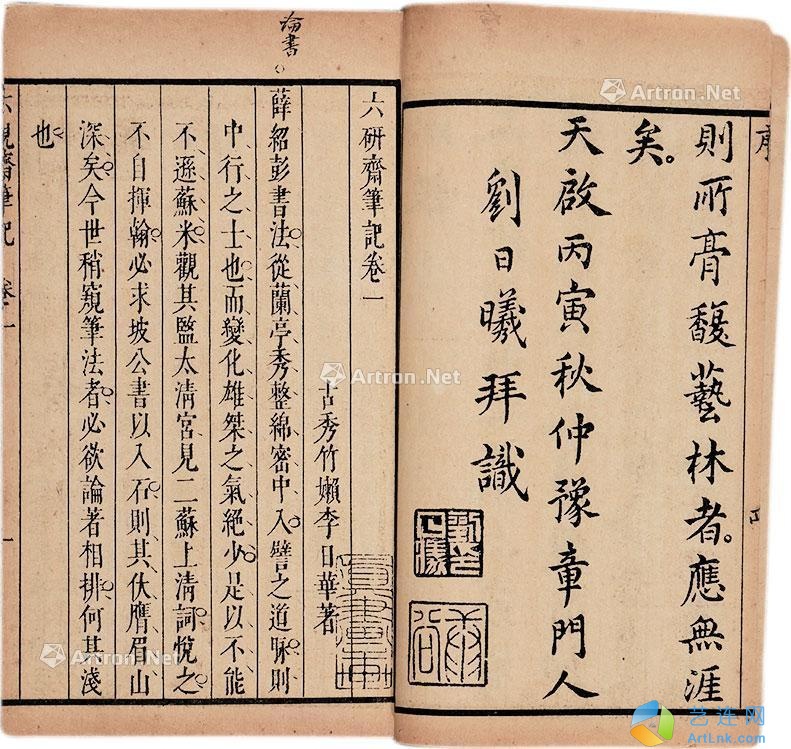 序
則所膏馥藝林者。應無涯
矣。
天啟丙寅秋仲豫章門人
劉日曦拜識
論書
六硏齋筆記卷一
古秀竹嬾李日華著
薛紹彭書法從蘭亭秀整綿密中入譬之道脉則
中行之士也而變化雄桀之氣絕少是以不能
不遜蘇米觀其監太清宮見二蘇上清詞悅之
不自揮翰必求坡公書以入石則其伏膺眉山
深矣今世稍窺筆法者必欲論著相排何其淺
也
六硯齋筆記 卷一 一
Artron.Net
Artron.Net
Artron.Net
Artron.Net
艺连网
ArtLnk.com